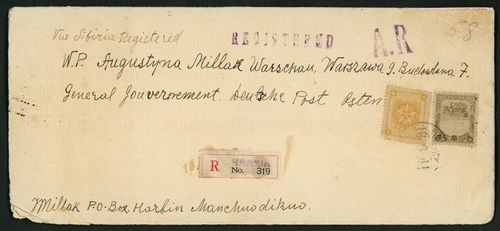 Via Sibiria Registered
REGISTERED
A.R
W.P. Augustyna Millak Warschau, Warszawa 9. Budowlana 7.
General Gouvernement Deutsche Post Osten
R
HARBIN
No. 319
Millak P.O. Box Harbin Manchoudikuo.